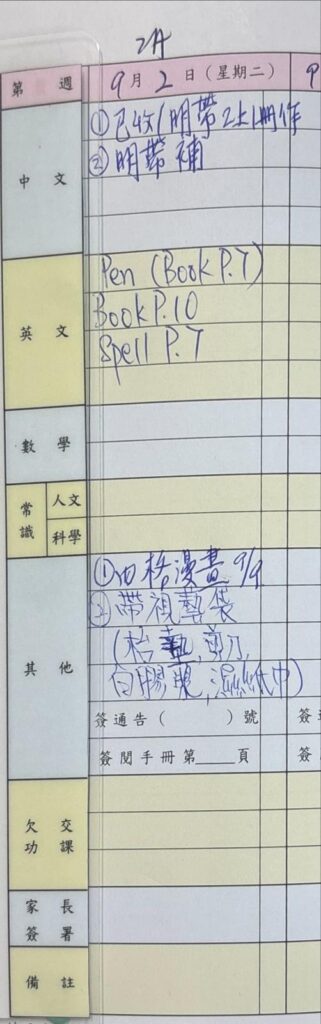 2A
第 週 9月2日(星期二) 9
中文 ①已收/明帶2上1冊作
②明帶補
英文 Pen (Book P.7)
Book P.10
Spell P.7
數學
常識 人文
科學
其他 ①四格漫畫 9/9
②帶視藝袋
(枱墊,剪刀,
白膠漿,濕紙巾)
簽通告( )號 簽
簽閱手冊第____頁 簽
欠交功課
家長簽署
備註